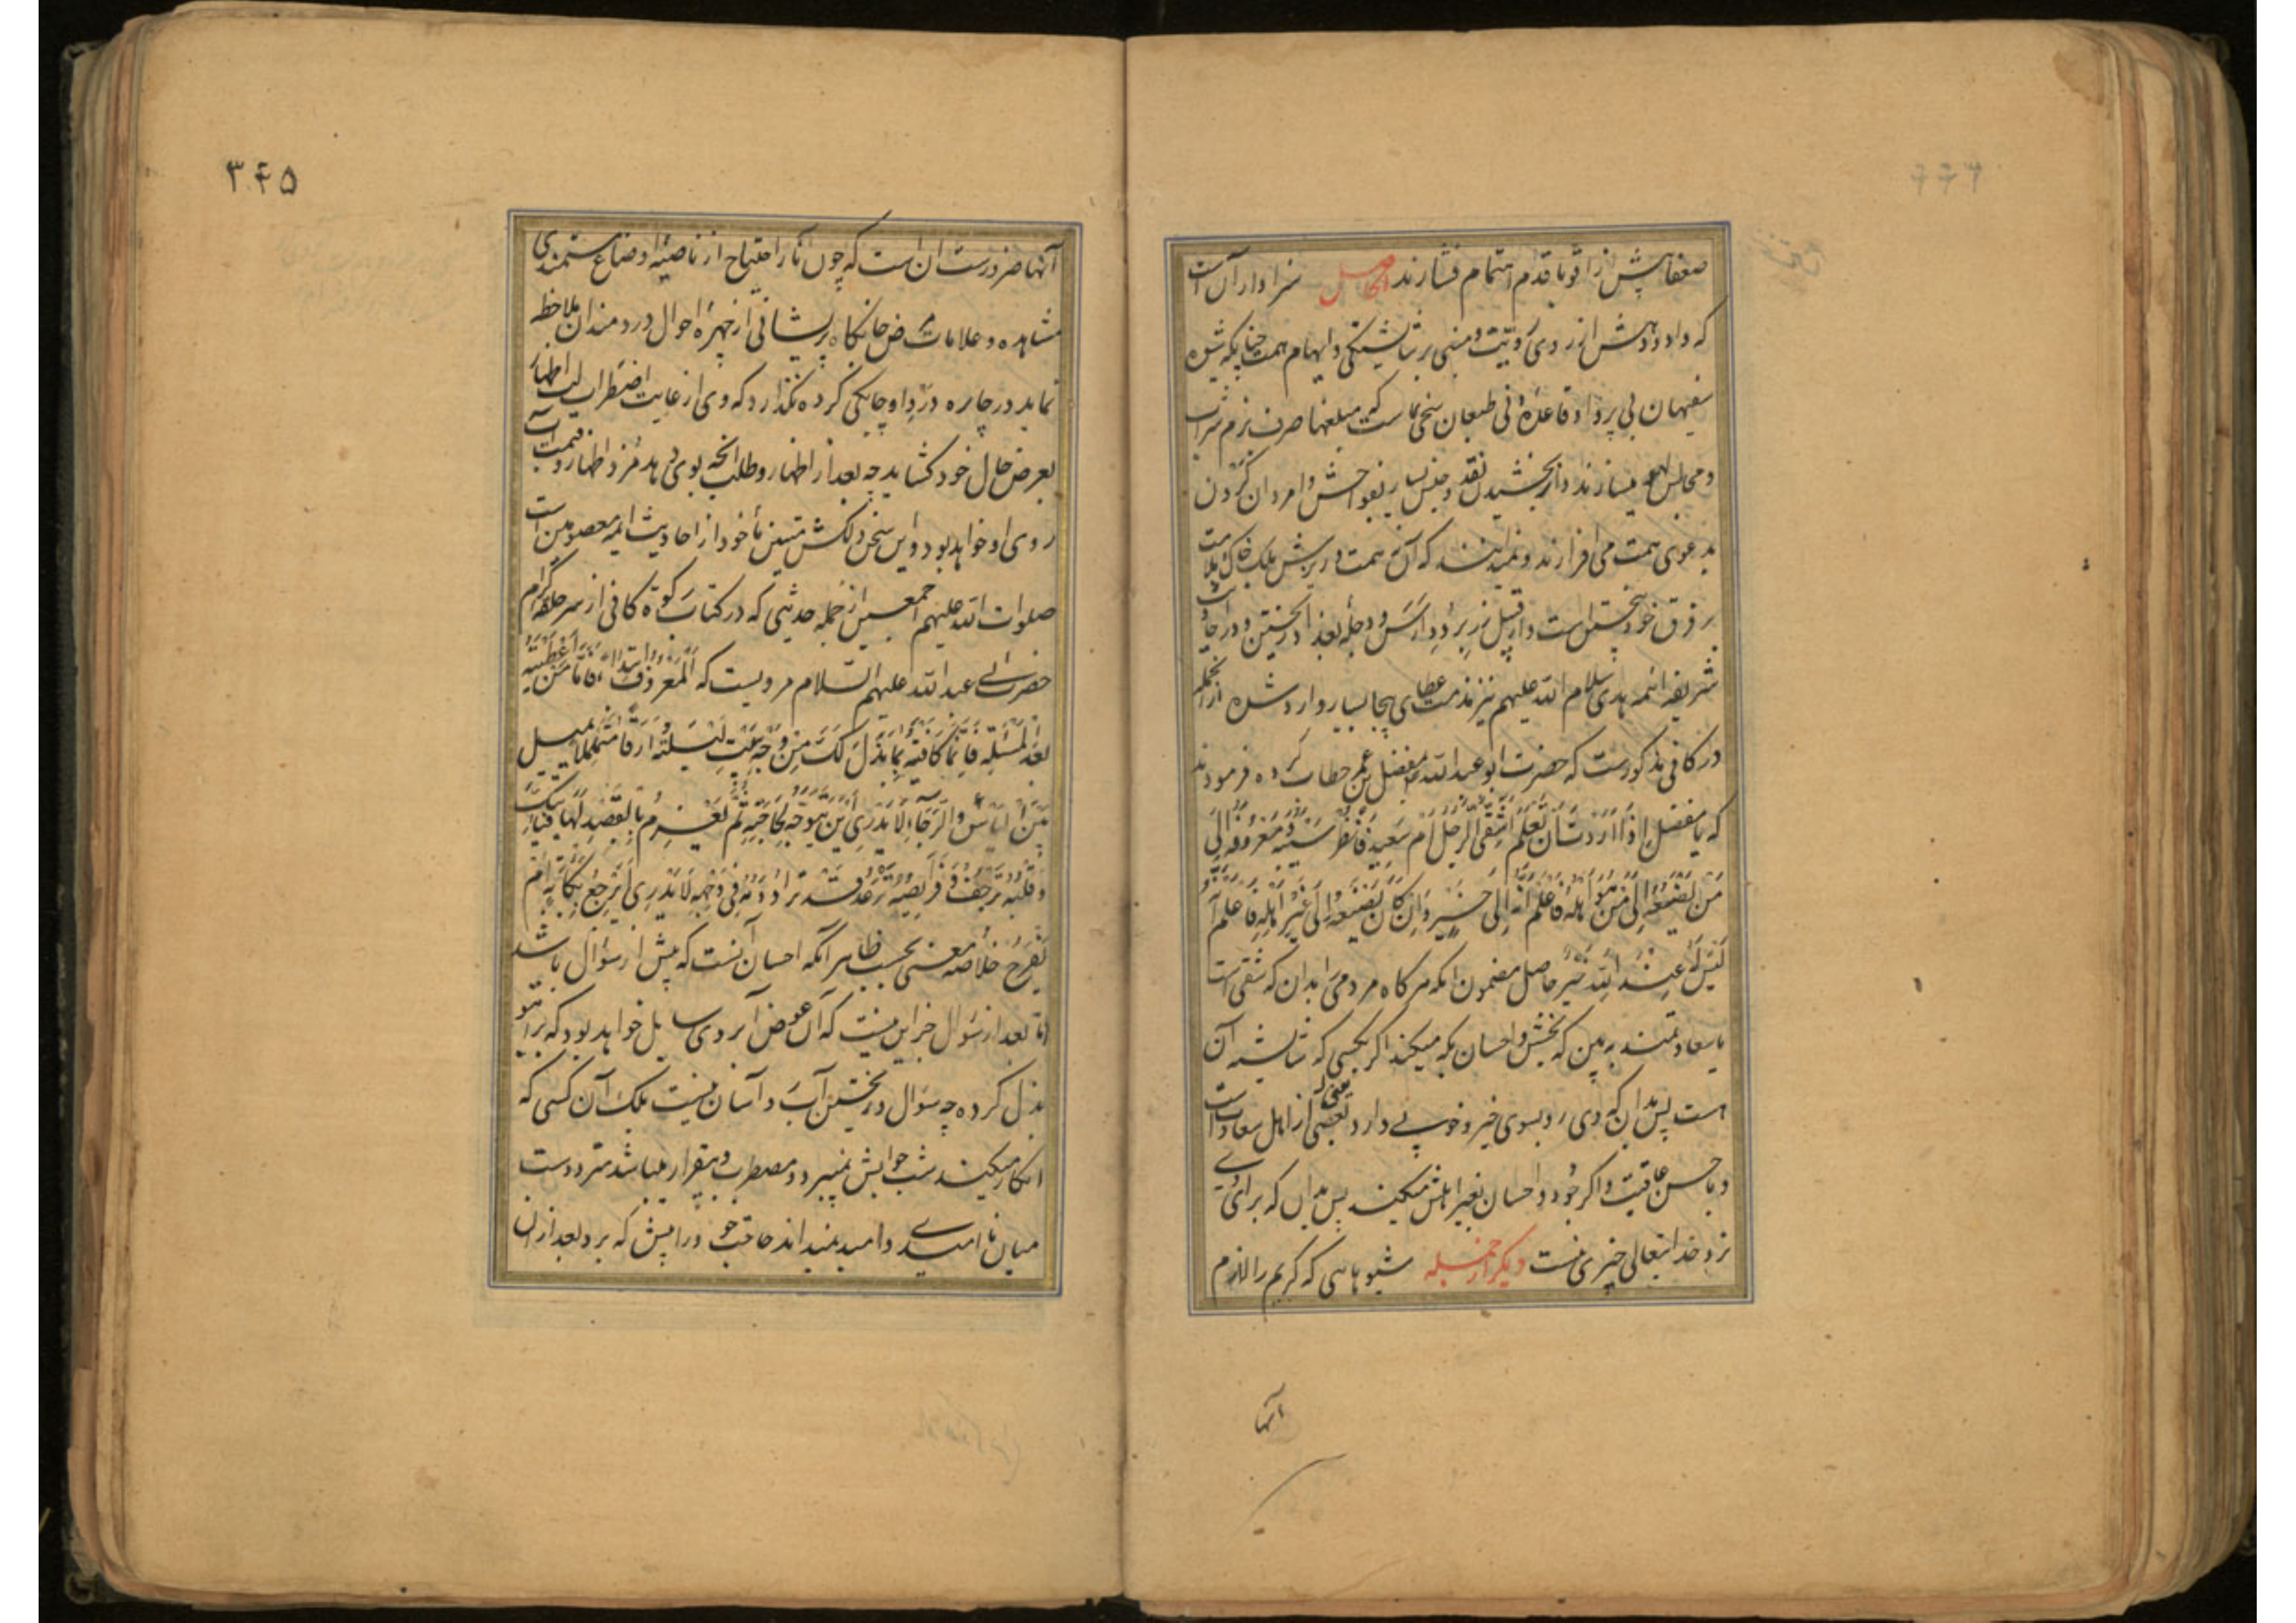 ضعفا پیش از اقویا قدم اهتمام فشارند الحاصل سزاوار آن است
که داد و دهش از روی رویت و مبنی بر شایستگی و ایهام همت چنانکه شیوه
سفیهان بی پروا و قاعده دنی طبعان سخی نماست که مبلغها صرف بزم شراب
و مجالس لهو میسازند و از بخشیدن نقد و جنس بسیار بفواحش و امردان گردن
بدعوی همت می افرازند و نمیدانند که آن همت در برش بلکه خاک ملامت
بر فرق خود بیختن است و از قبیل زر بر در ارس و دجله بغداد ریختن و در احادیث
شریفه ائمه هدی سلام الله علیهم نیز مذمت عطای بیجا بسیار وارد شده از انجمله
در کافی مذکورست که حضرت ابو عبد الله بمفضل بن عمر خطاب کرده فرمودند
که یا مفضل اذا اردت ان تعلم اشقی الرجل ام سعید فانظر سیبه و معروفه الی
من یصنعه الی من هو اهله فاعلم انه الی خیر و ان کان یصنعه الی غیر اهله فاعلم انه
لیس له عند الله خیر حاصل مضمون انکه هرگاه مردمی را بدان که شقی است
یا سعادتمند به بین که بخشش و احسان بکه میکند اگر بکسی که شایسته آن
است پس بدان که وی رو بسوی خیر و خوبی دارد یعنی از اهل سعادت است
و با حسن عاقبت و اگر جود و احسان بغیر اهلش میکند پس بدان که برای وی
نزد خدایتعالی خیری نیست دیگر از جمله شیوهایی که کریم را لازم
آنها
۳۴۵
آنها ضرورست آن است که چون آثار احتیاج از ناصیه اوضاع مستمندی
مشاهده و علامات مرض جانکاه پریشانی از چهره احوال دردمندان ملاحظه
نماید در چاره درد او چابکی کرده نگذارد که وی از غایت اضطراب لب اظهار
بعرض حال خود گشاید چه بعد از اظهار و طلب انچه بوی دهد مزد اظهار و قیمت آب
روی او خواهد بود و این سخن دلکش متین مأخوذ از احادیث ائمه معصومین است
صلوات الله علیهم اجمعین از جمله حدیثی که در کتاب زکوة کافی از سر حلقه کرام
حضرت ابی عبد الله علیهم السلام مرویست که المعروف ابتداء فاما من اعطیته
بعد المسئلة فانما کافیته بما بذل لک من وجهه یبیت لیلته ارقا متململا یمیل
بین الیأس و الرجاء لا یدری این یتوجه لحاجته ثم یعزم بالقصد لها فیأتیک
و قلبه یرجف و فرایصه ترعد قد تری دمه فی وجهه لا یدری ایرجع بکآبة ام
بفرح خلاصه معنی بحسب ظاهر انکه احسان آنست که پیش از سؤال باشد
اما بعد از سؤال جز این نیست که آن عوض آبروی سایل خواهد بود که برای تو
بذل کرده چه سؤال و ریختن آبرو آسان نیست بلکه آن کسی که
انکار میکند شب خوابش نمیبرد و مضطرب و بیقرار میباشد متردد است
میان نا امیدی و امید نمیداند حاجت خود را پیش که برد بعد از ان